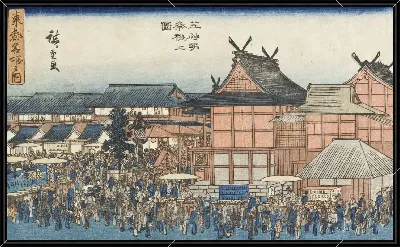 芝神明
祭礼之
圖
廣重画
東都名所之内